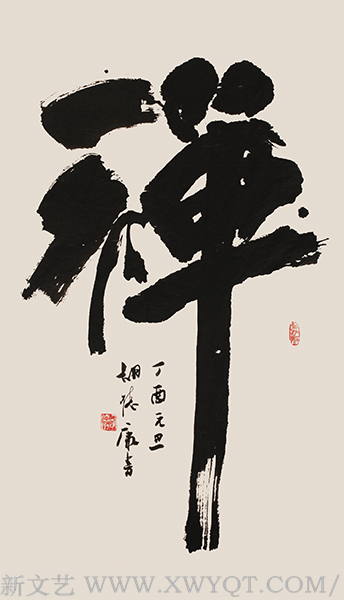 禅
丁酉元旦
新文艺 WWW.XWYQT.COM/